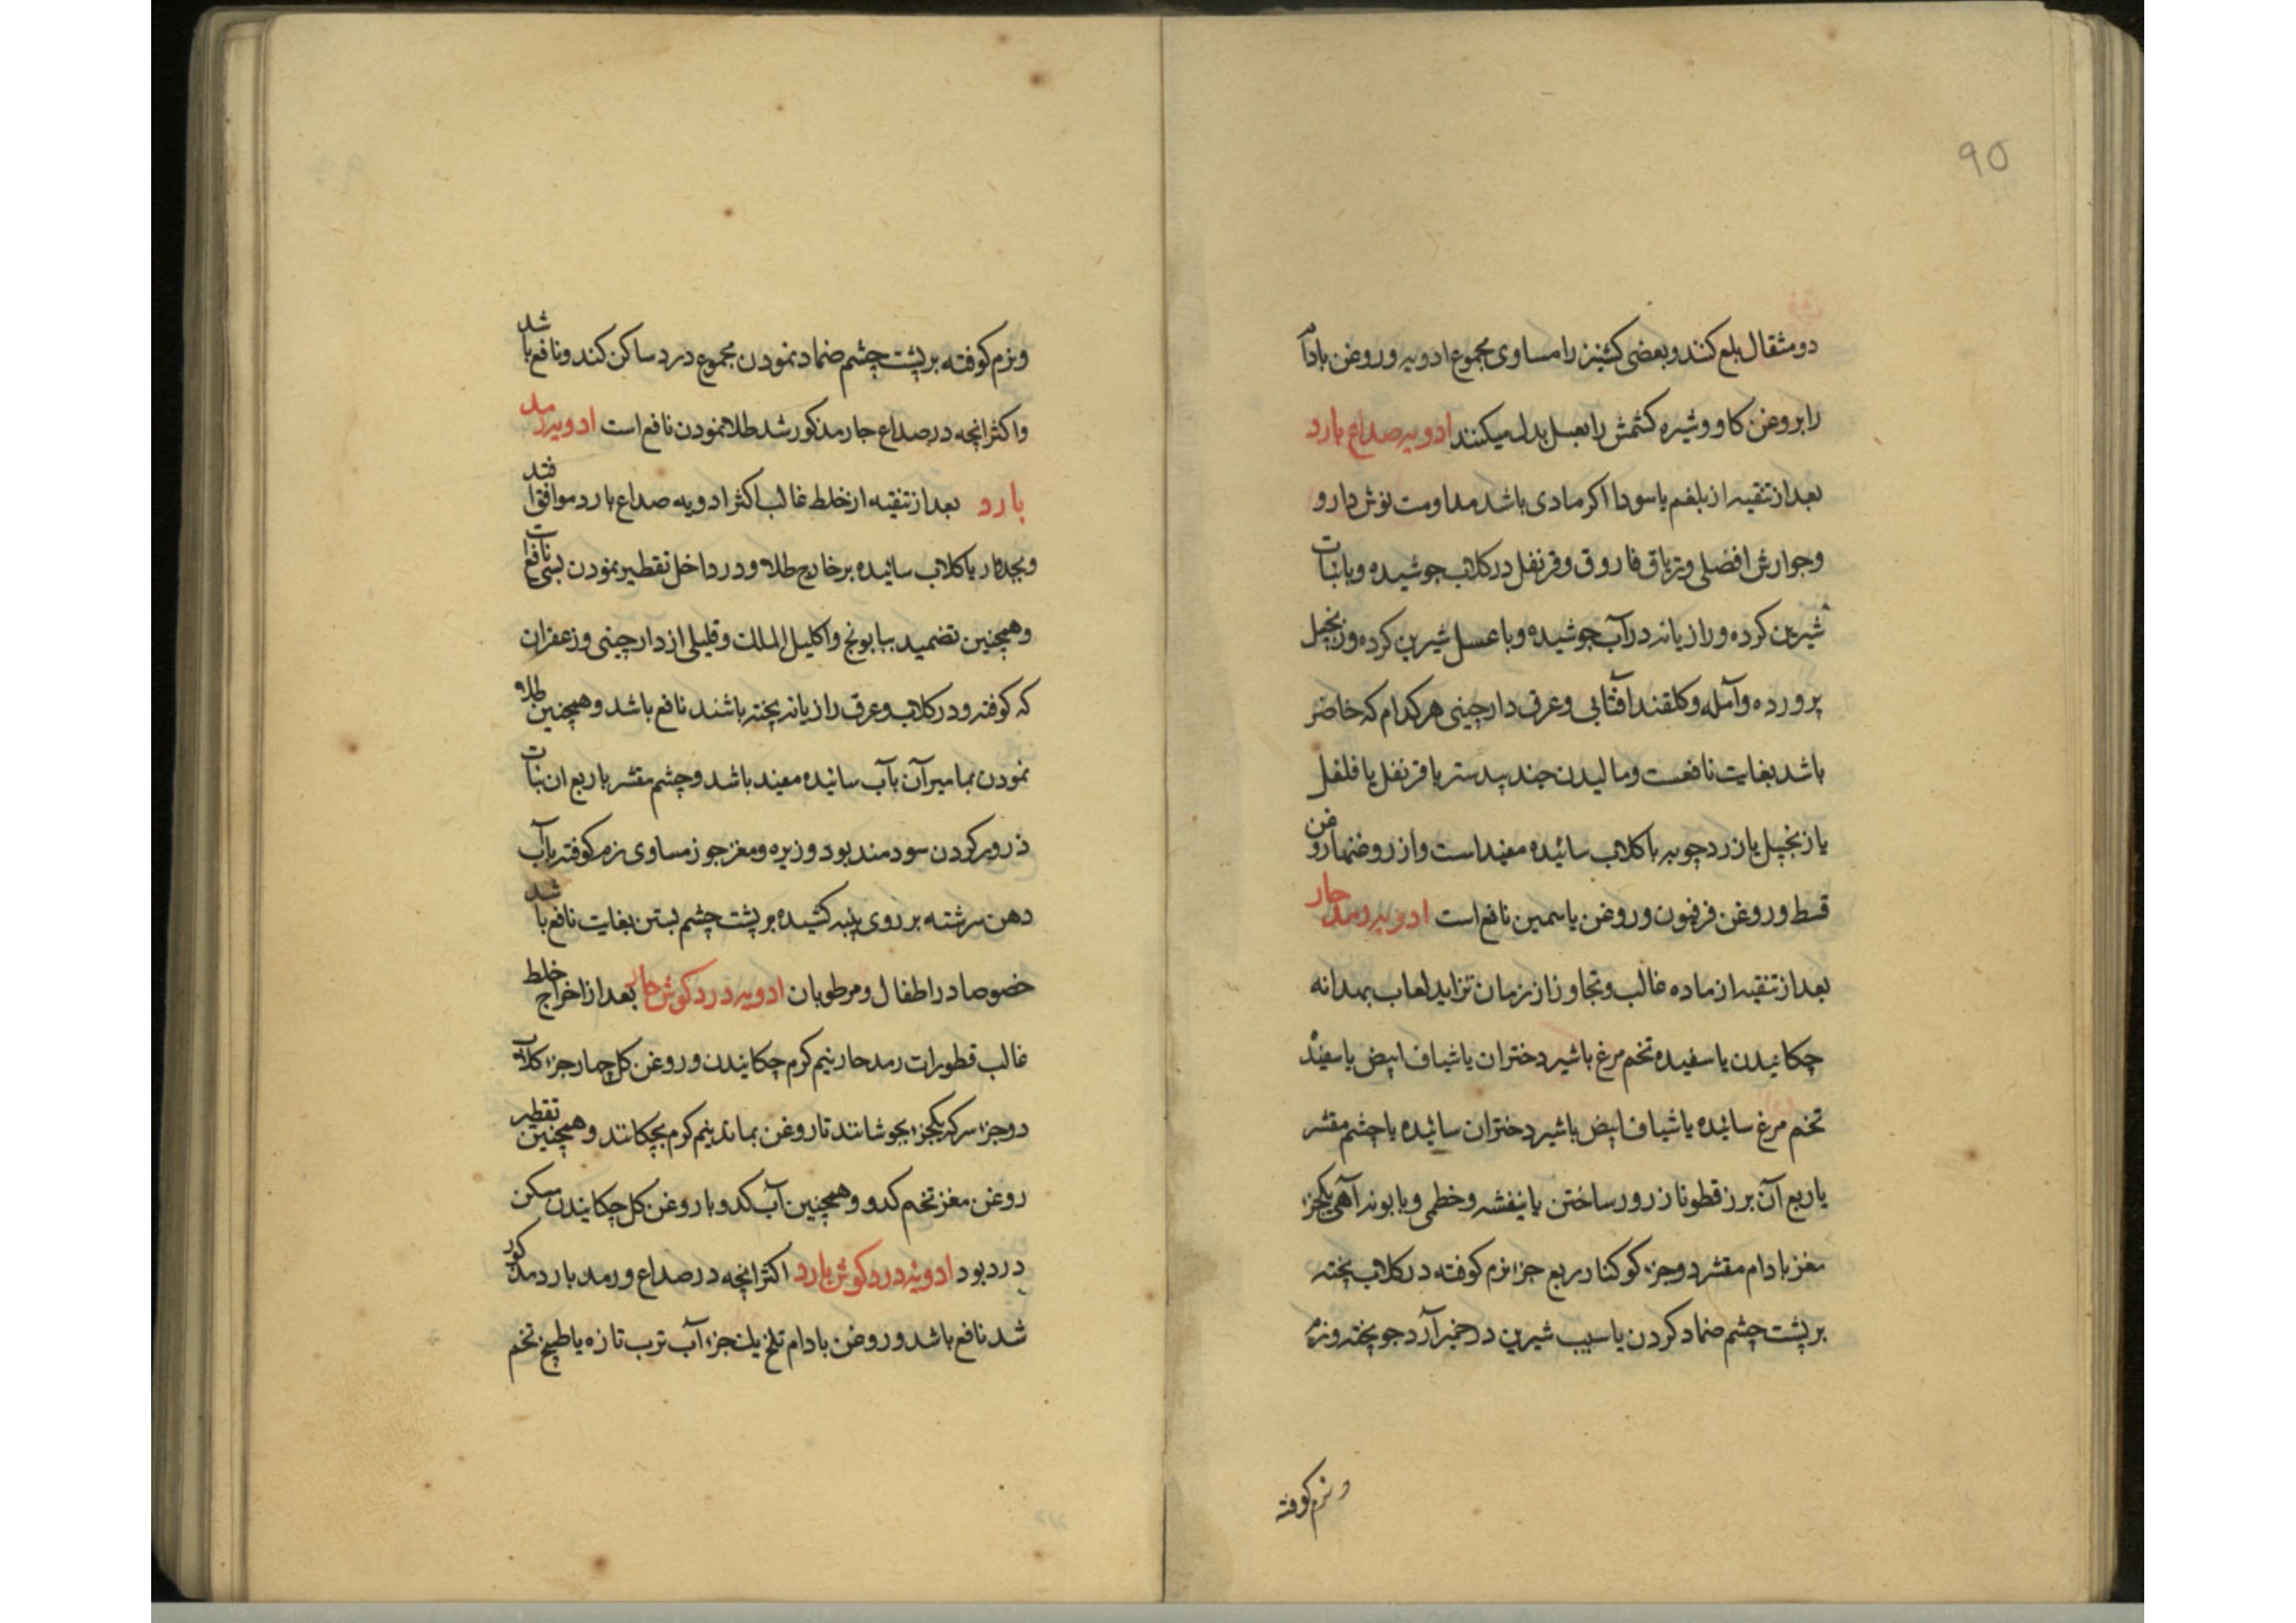 ۹۵
دو مثقال بلع کنند و بعضی کشنیز را مساوی مجموع ادویه و روغن بادام
را بروغن کاو و شیره کشمش را بعسل بدل میکنند ادویه صداع بارد
بعد از تنقیه از بلغم یا سودا اکر مادی باشد مداومت نوش دارو
و جوارش افضلی و تریاق فاروق و قرنفل در کلاب جوشیده و با نبات
شیرین کرده و رازیانه در آب جوشیده و با عسل شیرین کرده و زنجبیل
پرورده و آمله و کلقند آفتابی و عرق دارچینی هر کدام که حاضر
باشد بغایت نافعست و مالیدن جند بیدستر یا قرنفل یا فلفل
یا زنجبیل یا زردچوبه با کلاب سائیده مفید است و از روغنها روغن
قسط و روغن فرفیون و روغن یاسمین نافع است ادویه رمد حار
بعد از تنقیه از ماده غالب و تجاوز از زمان تزاید لعاب بهدانه
چکانیدن یا سفیده تخم مرغ با شیر دختران یا شیاف ابیض یا سفیده
تخم مرغ سائیده یا شیاف ابیض با شیر دختران سائیده یا چشم مقشر
با ربع آن برز قطونا زرور ساختن یا بنفشه و خطمی و بابونه آهی یکجزء
مغز بادام مقشر دو جزء کوکنار ربع جزء نرم کوفته در کلاب پخته
بر پشت چشم ضماد کردن یا سیب شیرین در خمیر آرد جو پخته و نرم
و نرم کوفته
و نرم کوفته بر پشت چشم ضماد نمودن مجموع درد ساکن کند و نافع باشد
و اکثر انچه در صداع حار مذکور شد طلا نمودن نافع است ادویه رمد
بارد بعد از تنقیه از خلط غالب اکثر ادویه صداع بارد موافق افتد
و بکلاب سائیده بر خارج طلا و در داخل تقطیر نمودن بسی نافع است
و همچنین تضمید ببابونج و اکلیل الملک و قلیلی از دارچینی و زعفران
که کوفته و در کلاب و عرق رازیانه پخته باشند نافع باشد و همچنین طلا
نمودن بمامیرآن بآب سائیده مفید باشد و چشم مقشر با ربع ان نبات
ذرور کردن سودمند بود و زیره و مغز جوز مساوی نرم کوفته بآب
دهن سرشته بر روی پنبه کشیده بر پشت چشم بستن بغایت نافع باشد
خصوصا در اطفال و مرطوبان ادویه درد کوش حار بعد از اخراج خلط
غالب قطورات رمد حار نیم کرم چکانیدن و روغن کل چهار جزء کلاب
دو جزء سرکه یکجزء بجوشانند تا روغن بماند نیم کرم بچکانند و همچنین تقطیر
روغن مغز تخم کدو و همچنین آب کدو با روغن کل چکانیدن مسکن
درد بود ادویه درد کوش بارد اکثر انچه در صداع و رمد بارد مذکور
شد نافع باشد و روغن بادام تلخ یک جزء آب ترب تازه یا طبیخ تخم